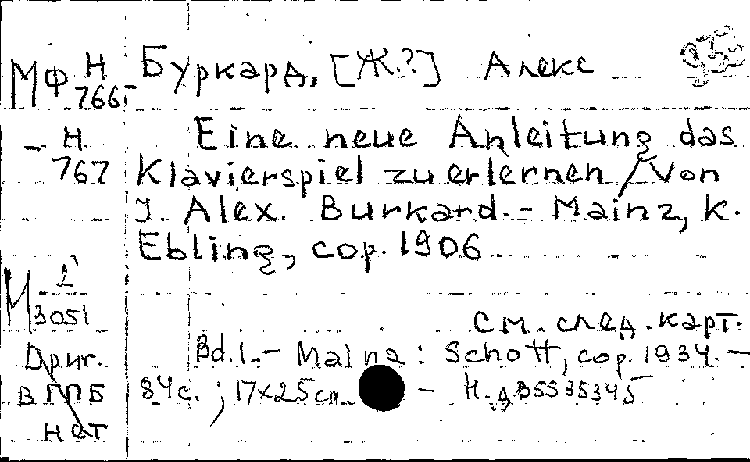 МФ Н 7665 Буркард, [Ж.?] Алекс
– Н 767 Eine neue Anleitung das
Klavierspiel zu erlernen / Von
J. Alex. Burkard. – Mainz, K.
Ebling, cop. 1906
М 2 3051
См. след. карт.
Ориг. Bd. 1. – Mainz : Schott, cop. 1934. –
в ГПБ 84 с. ; 17x25 cm – Н.д.
нот